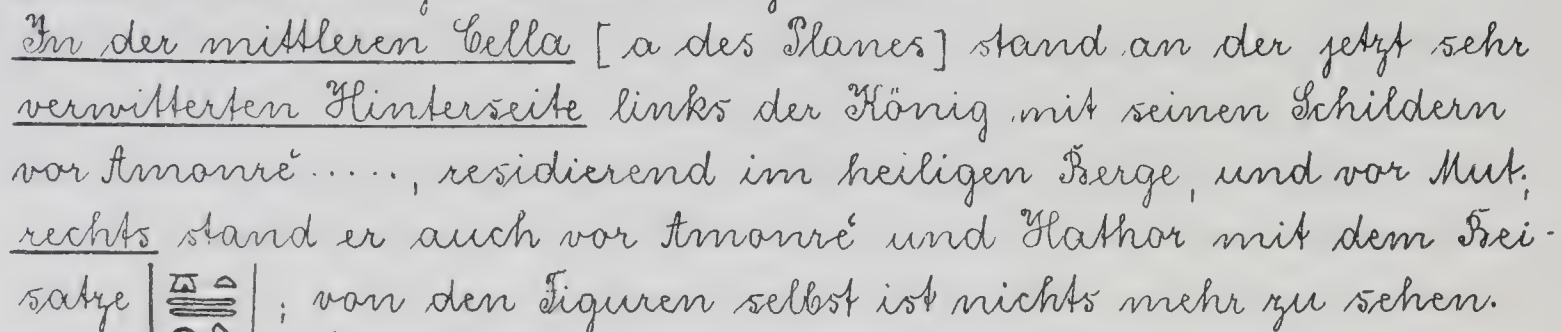 In der mittleren Cella [a des Planes] stand an der jetzt sehr
verwitterten Hinterseite links der König mit seinen Schildern
vor Amonrēʿ ....., residierend im heiligen Berge, und vor Mut;
rechts stand er auch vor Amonrēʿ und Hathor mit dem Bei-
satze | | ; von den Figuren selbst ist nichts mehr zu sehen.